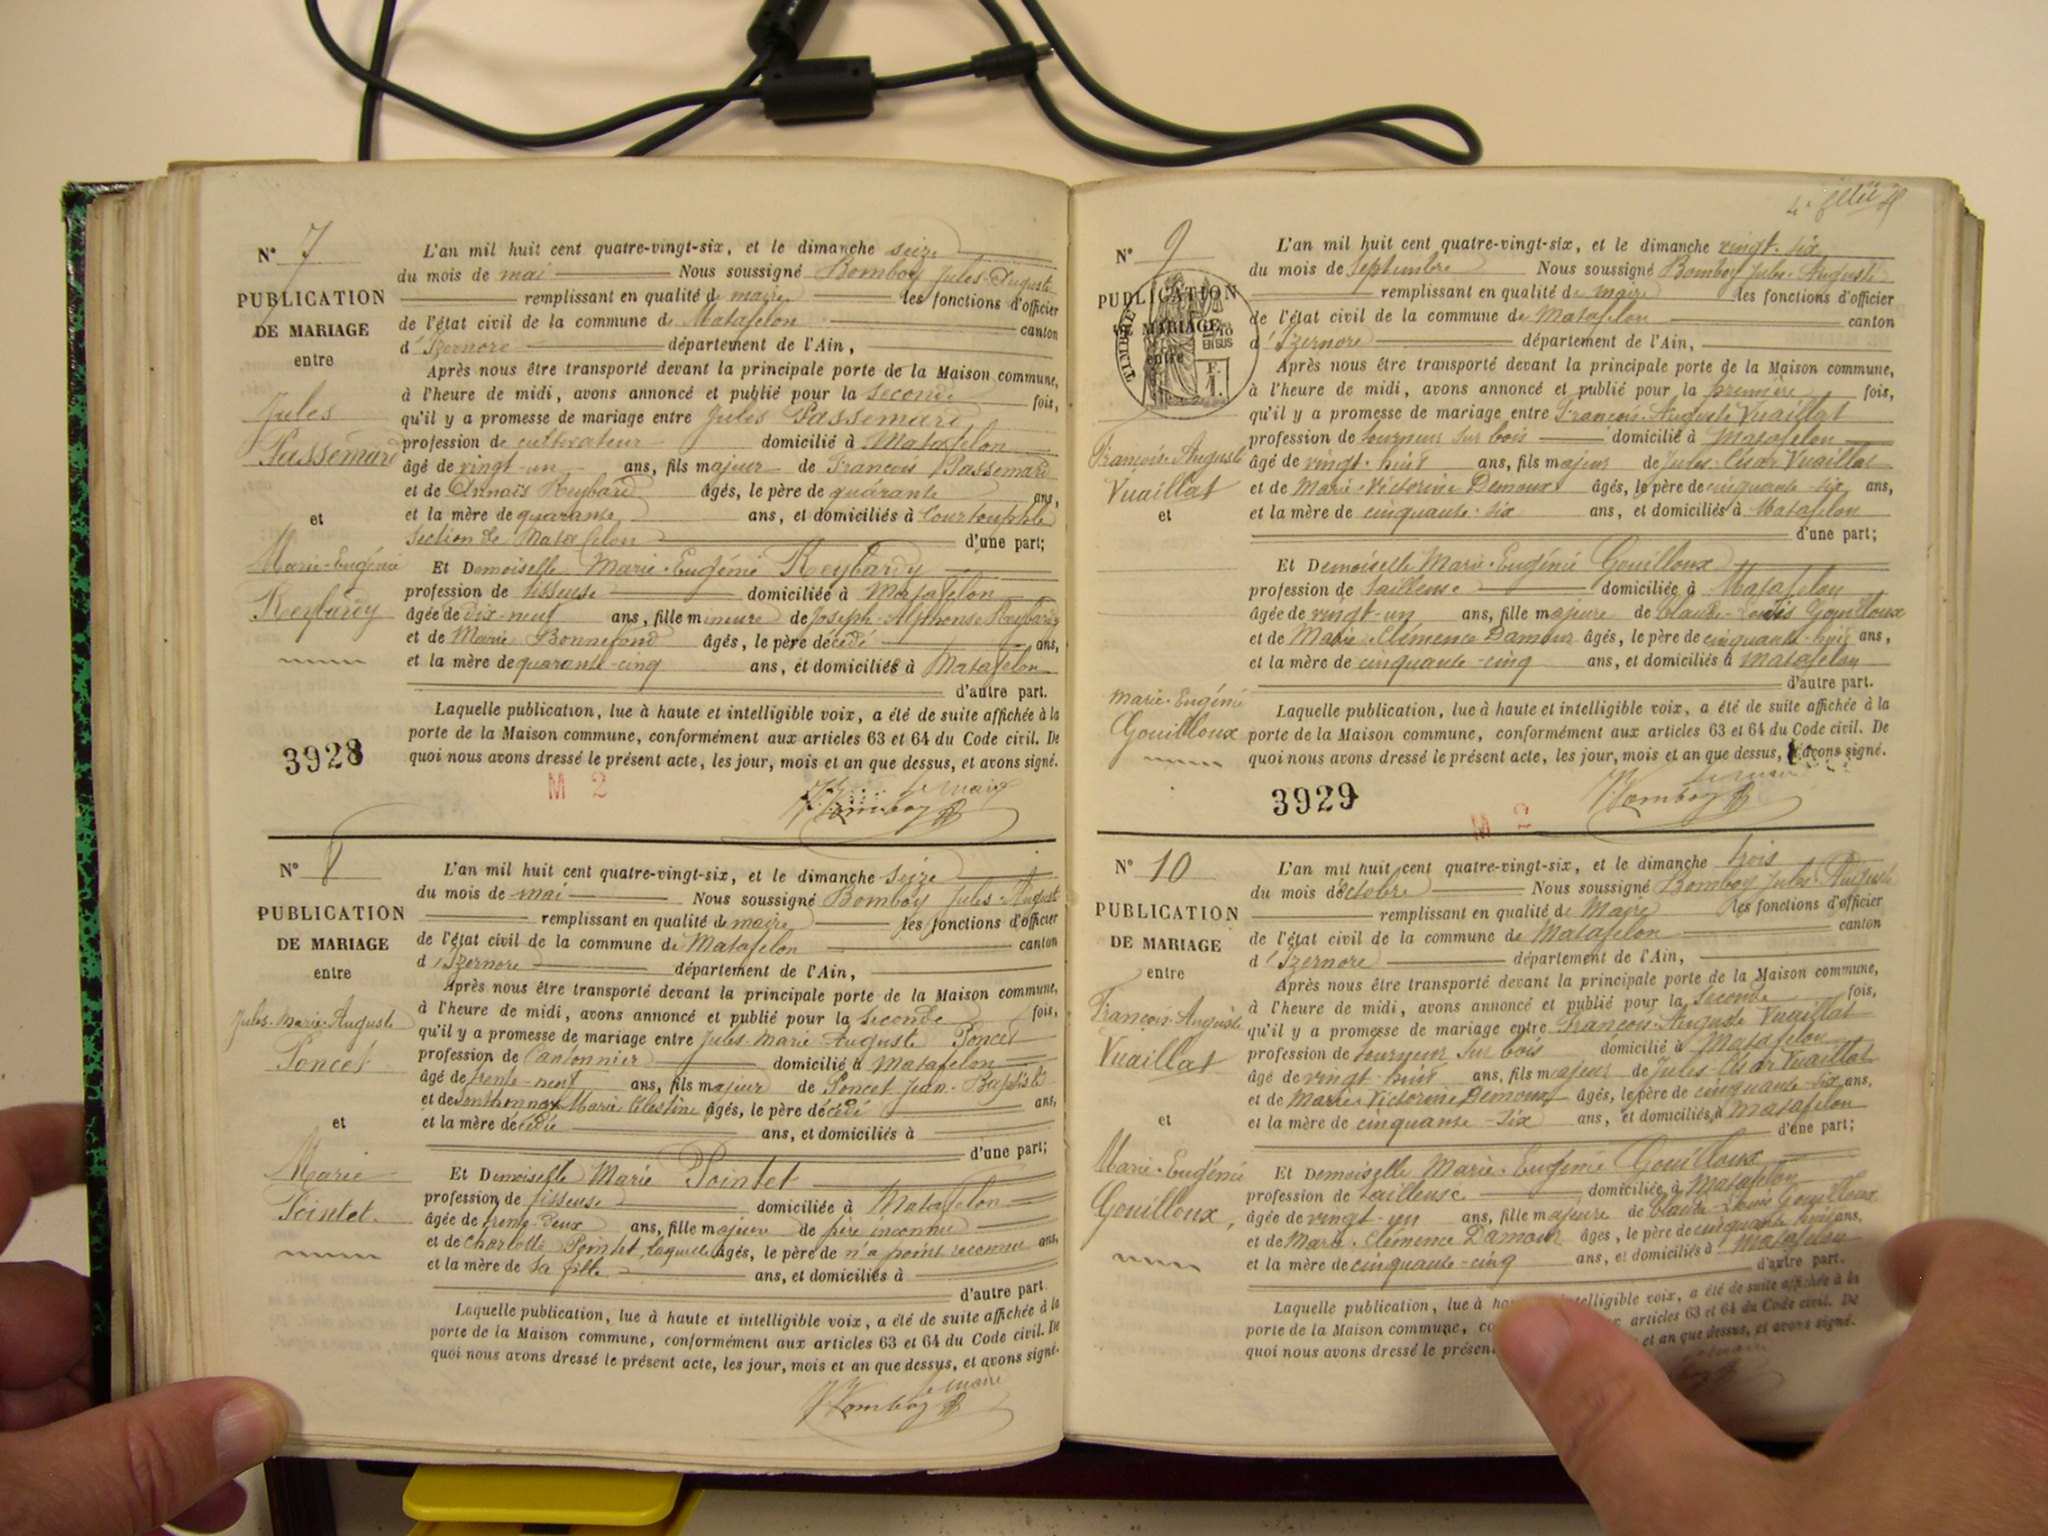 N° 7
PUBLICATION
DE MARIAGE
entre
Jules
Passemard
et
Marie-Eugénie
Reybardy
L'an mil huit cent quatre-vingt-six, et le dimanche seize
du mois de mai Nous soussigné Bomboy Jules-Auguste
remplissant en qualité de maire les fonctions d'officier
de l'état civil de la commune de Matafelon canton
d'Izernore département de l'Ain,
Après nous être transporté devant la principale porte de la Maison commune,
à l'heure de midi, avons annoncé et publié pour la seconde fois,
qu'il y a promesse de mariage entre Jules Passemard
profession de cultivateur domicilié à Matafelon
âgé de vingt-un ans, fils majeur de François Passemard
et de Annaïs Reybard âgés, le père de quarante ans,
et la mère de quarante ans, et domiciliés à Courtouphle
section de Matafelon d'une part;
Et Demoiselle Marie-Eugénie Reybardy
profession de tisseuse domiciliée à Matafelon
âgée de dix-neuf ans, fille mineure de Joseph-Alphonse Reybardy
et de Marie Bonnefond âgés, le père décédé ans,
et la mère de quarante-cinq ans, et domiciliés à Matafelon
d'autre part.
Laquelle publication, lue à haute et intelligible voix, a été de suite affichée à la
porte de la Maison commune, conformément aux articles 63 et 64 du Code civil. De
quoi nous avons dressé le présent acte, les jour, mois et an que dessus, et avons signé.
3928
M 2
le maire
Bomboy
N° 8
PUBLICATION
DE MARIAGE
entre
Jules-Marie-Auguste
Poncet
et
Marie
Pointet
L'an mil huit cent quatre-vingt-six, et le dimanche seize
du mois de mai Nous soussigné Bomboy Jules-Auguste
remplissant en qualité de maire les fonctions d'officier
de l'état civil de la commune de Matafelon canton
d'Izernore département de l'Ain,
Après nous être transporté devant la principale porte de la Maison commune,
à l'heure de midi, avons annoncé et publié pour la seconde fois,
qu'il y a promesse de mariage entre Jules-Marie Auguste Poncet
profession de Cantonnier domicilié à Matafelon
âgé de trente-neuf ans, fils majeur de Poncet Jean-Baptiste
et de Marie Célestine âgés, le père décédé ans,
et la mère décédée ans, et domiciliés à
d'une part;
Et Demoiselle Marie Pointet
profession de tisseuse domiciliée à Matafelon
âgée de trente-deux ans, fille majeure de père inconnu
et de Charlotte Pointet, laquelle âgés, le père de n'a point reconnu ans,
et la mère de sa fille ans, et domiciliés à
d'autre part.
Laquelle publication, lue à haute et intelligible voix, a été de suite affichée à la
porte de la Maison commune, conformément aux articles 63 et 64 du Code civil. De
quoi nous avons dressé le présent acte, les jour, mois et an que dessus, et avons signé.
le maire
Bomboy
N° 9
PUBLICATION
DE MARIAGE
entre
TIMBRE
François-Auguste
Vuaillat
et
Marie-Eugénie
Gouilloux
L'an mil huit cent quatre-vingt-six, et le dimanche vingt-six
du mois de Septembre Nous soussigné Bomboy Jules-Auguste
remplissant en qualité de maire les fonctions d'officier
de l'état civil de la commune de Matafelon canton
d'Izernore département de l'Ain,
Après nous être transporté devant la principale porte de la Maison commune,
à l'heure de midi, avons annoncé et publié pour la première fois,
qu'il y a promesse de mariage entre François-Auguste Vuaillat
profession de tourneur sur bois domicilié à Matafelon
âgé de vingt-huit ans, fils majeur de Jules-César Vuaillat
et de Marie-Victorine Demoux âgés, le père de cinquante-six ans,
et la mère de cinquante-six ans, et domiciliés à Matafelon
d'une part;
Et Demoiselle Marie-Eugénie Gouilloux
profession de tailleuse domiciliée à Matafelon
âgée de vingt-un ans, fille majeure de Claude-Louis Gouilloux
et de Marie-Clémence Damour âgés, le père de cinquante-huit ans,
et la mère de cinquante-cinq ans, et domiciliés à Matafelon
d'autre part.
Laquelle publication, lue à haute et intelligible voix, a été de suite affichée à la
porte de la Maison commune, conformément aux articles 63 et 64 du Code civil. De
quoi nous avons dressé le présent acte, les jour, mois et an que dessus, et avons signé.
3929
M 2
le maire
Bomboy
N° 10
PUBLICATION
DE MARIAGE
entre
François-Auguste
Vuaillat
et
Marie-Eugénie
Gouilloux,
L'an mil huit cent quatre-vingt-six, et le dimanche trois
du mois d'octobre Nous soussigné Bomboy Jules-Auguste
remplissant en qualité de Maire les fonctions d'officier
de l'état civil de la commune de Matafelon canton
d'Izernore département de l'Ain,
Après nous être transporté devant la principale porte de la Maison commune,
à l'heure de midi, avons annoncé et publié pour la seconde fois,
qu'il y a promesse de mariage entre François-Auguste Vuaillat
profession de tourneur sur bois domicilié à Matafelon
âgé de vingt-huit ans, fils majeur de Jules-César Vuaillat
et de Marie Victorine Demoux âgés, le père de cinquante-six ans,
et la mère de cinquante-six ans, et domiciliés à Matafelon
d'une part;
Et Demoiselle Marie-Eugénie Gouilloux
profession de tailleuse domiciliée à Matafelon
âgée de vingt-un ans, fille majeure de Claude-Louis Gouilloux
et de Marie-Clémence Damour âgés, le père de cinquante huit ans,
et la mère de cinquante-cinq ans, et domiciliés à Matafelon
d'autre part.
Laquelle publication, lue à intelligible voix, a été de suite affichée à la
porte de la Maison commune, articles 63 et 64 du Code civil. De
quoi nous avons dressé le présent et an que dessus, et avons signé.